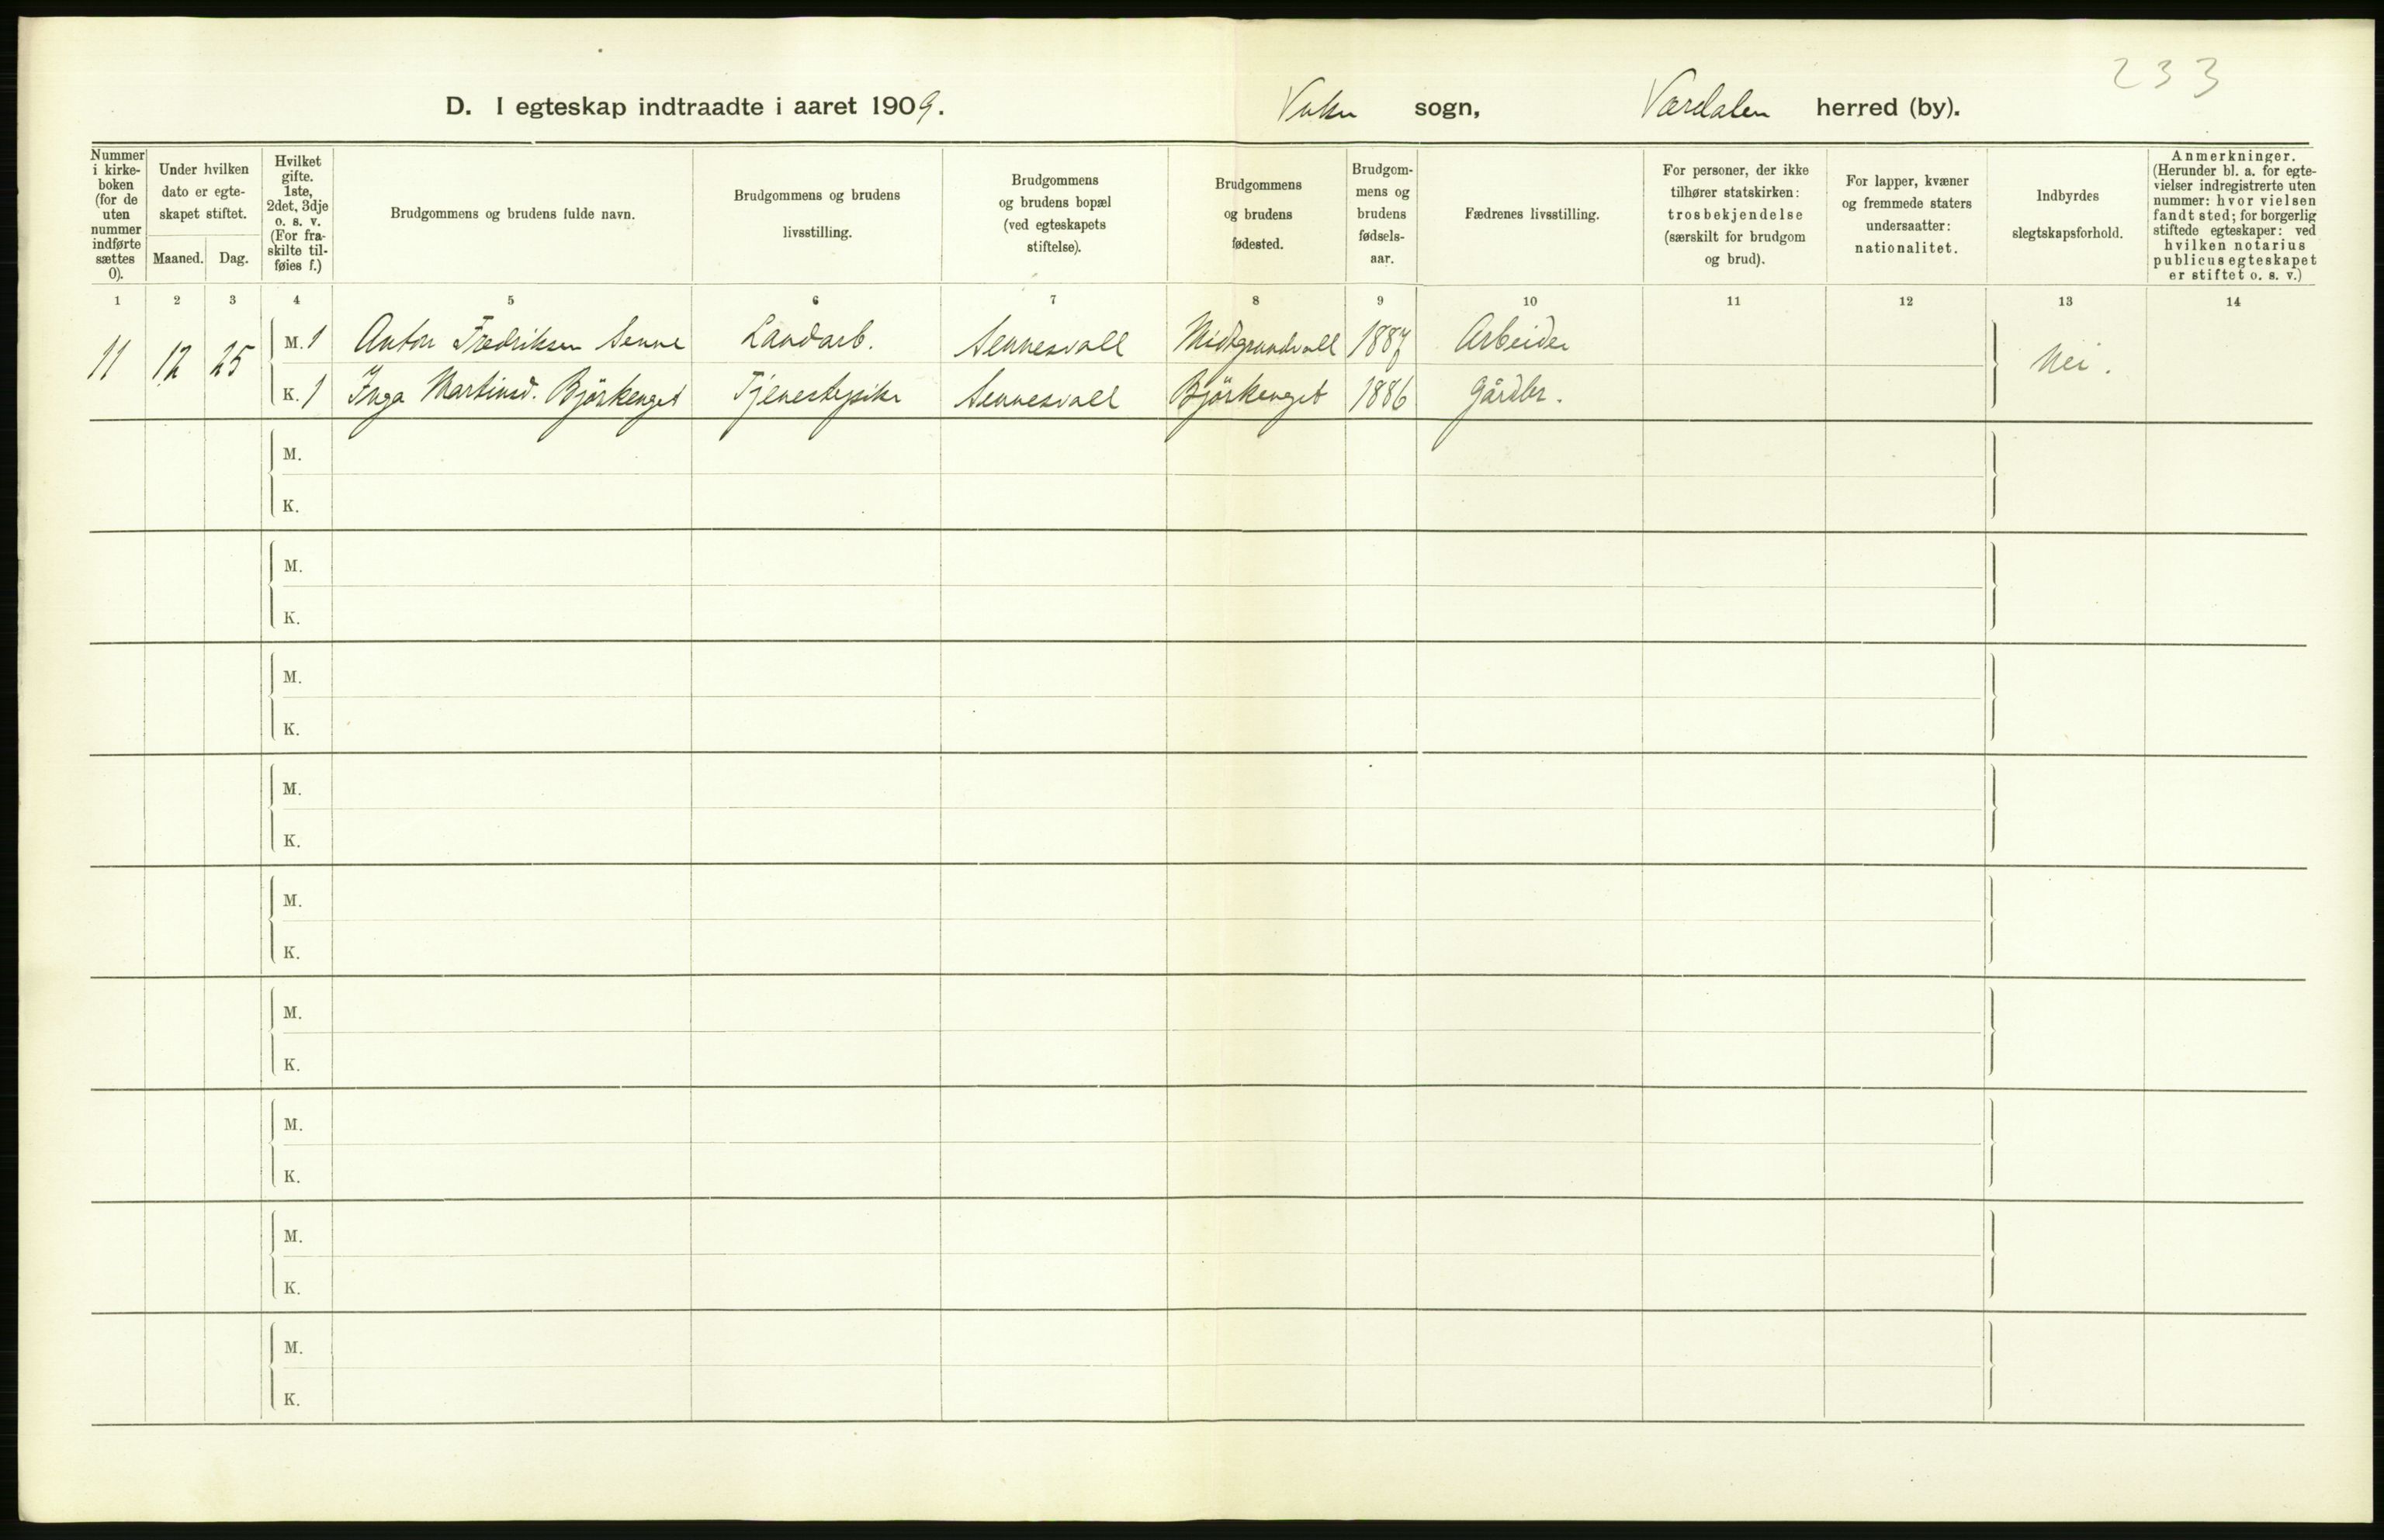 233
D. I egteskap indtraadte i aaret 1909. Vuku sogn, Værdalen herred (by).
Nummer i kirke- boken (for de uten nummer indførte sættes 0).
Under hvilken dato er egte- skapet stiftet.
Maaned. Dag.
Hvilket gifte. 1ste, 2det, 3dje o. s. v. (For fra- skilte til- føies f.)
Brudgommens og brudens fulde navn.
Brudgommens og brudens livsstilling.
Brudgommens og brudens bopæl (ved egteskapets stiftelse).
Brudgommens og brudens fødested.
Brudgom- mens og brudens fødsels- aar.
Fædrenes livsstilling.
For personer, der ikke tilhører statskirken: trosbekjendelse (særskilt for brudgom og brud).
For lapper, kvæner og fremmede staters undersaatter: nationalitet.
Indbyrdes slegtskapsforhold.
Anmerkninger. (Herunder bl. a. for egte- vielser indregistrerte uten nummer: hvor vielsen fandt sted; for borgerlig stiftede egteskaper: ved hvilken notarius publicus egteskapet er stiftet o. s. v.)
1 2 3 4 5 6 7 8 9 10 11 12 13 14
11 12 25 M. 1 Anton Fredriksen Senne Landarb. Sennesvall Midtgrundvall 1887 Arbeider Nei.
K. 1 Inga Martinsd. Björkenget Tjenestepike Sennesvall Björkenget 1886 Gårdbr.
M.
K.
M.
K.
M.
K.
M.
K.
M.
K.
M.
K.
M.
K.
M.
K.
M.
K.